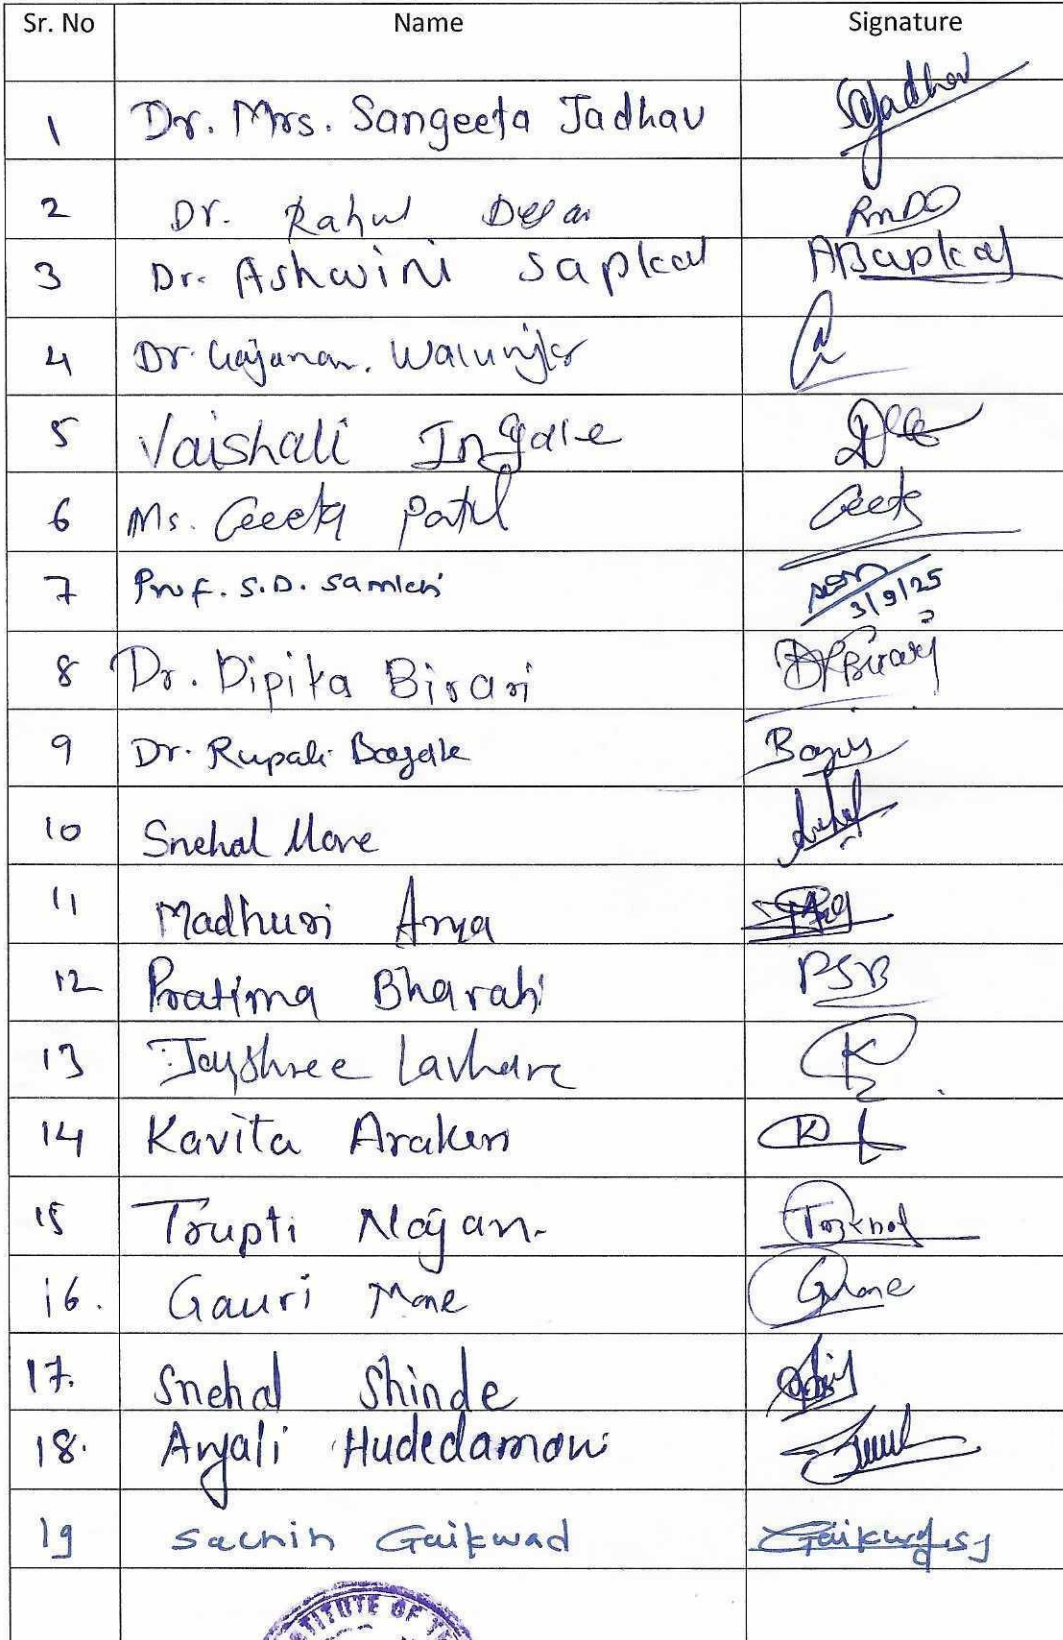 Sr. No Name Signature
1 Dr. Mrs. Sangeeta Jadhav SJadhav
2 Dr. Rahul Desai RMD
3 Dr. Ashwini Sapkal ABSapkal
4 Dr. Gajanan. Walunjkar
5 Vaishali Ingale
6 Ms. Geeta Patil Geeta
7 Prof. S.D. 3/9/25
8 Dr. Dipika Birari DPBirari
9 Dr. Rupali Bagale
10 Snehal More
11 Madhuri Arya
12 Pratima Bharati PSB
13 Jayshree Lavhare
14 Kavita Arakeri
15 Trupti
16. Gauri Mane GMane
17. Snehal Shinde
18. Anjali Hudedamani
19 Sachin Gaikwad Gaikwad
TITUTE OF